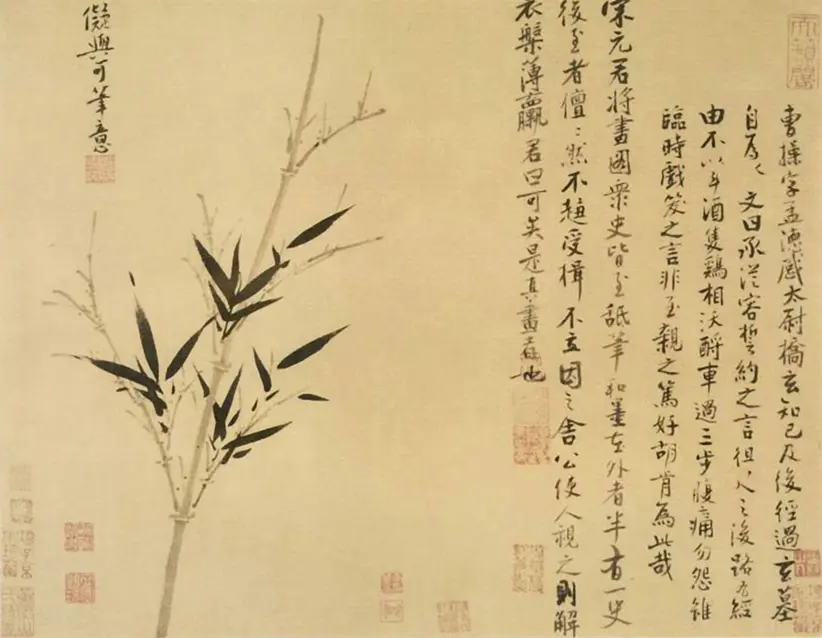 曹操字孟德感太尉橋玄知已及後徑過玄墓
自為之文曰承從容誓約之言徂之後路有經
由不以斗酒隻鷄相沃酹車過三步腹痛勿怨雖
臨時戲笑之言非至親之篤好胡肯為此哉
宋元君將畫圖衆史皆至舐筆和墨在外者半有一史
後至者儃〻然不趨受揖不立因之舍公使人視之則解
衣槃薄臝君曰可矣是真畫者也
儗與可筆意